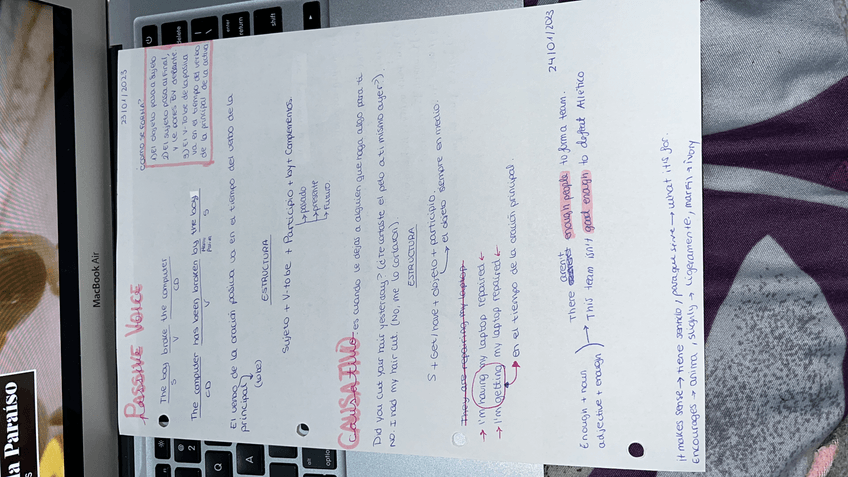 23/01/2023
PASSIVE VOICE
¿CÓMO SE FORMA?
1) El objeto pasa a sujeto
2) El sujeto pasa al final,
y le pones BY delante
3) El V. To be de la pasiva
va en el tiempo del verbo
de la principal de la activa
The boy broke the computer
S V CD
The computer has been broken by the boy
CD V S
El verbo de la oración pasiva va en el tiempo del verbo de la
principal
(to be)
ESTRUCTURA
Sujeto + V-to be + Participio + by + Complementos.
pasado
presente
futuro
CAUSATIVO es cuando le dejas a alguien que haga algo para ti
Did you cut your hair yesterday? (¿Te cortaste el pelo a ti mismo ayer?)
No. I had my hair cut (No, me lo cortaron).
ESTRUCTURA
S + Get/have + objeto + participio.
el objeto siempre en medio.
They are repairing my laptop
→ I'm having my laptop repaired ←
→ I'm getting my laptop repaired ←
en el tiempo de la oración principal.
24/01/2023
There aren't enough people to form a team.
Enough + noun
adjective + enough → This team isn't good enough to defeat Atlético
it makes sense → tiene sentido / para que sirve → what it is for.
Encourages → anima, slightly → ligeramente, marfil → ivory
MacBook Air
a Paraíso
delete
return
enter
shift
Q
A
2
option